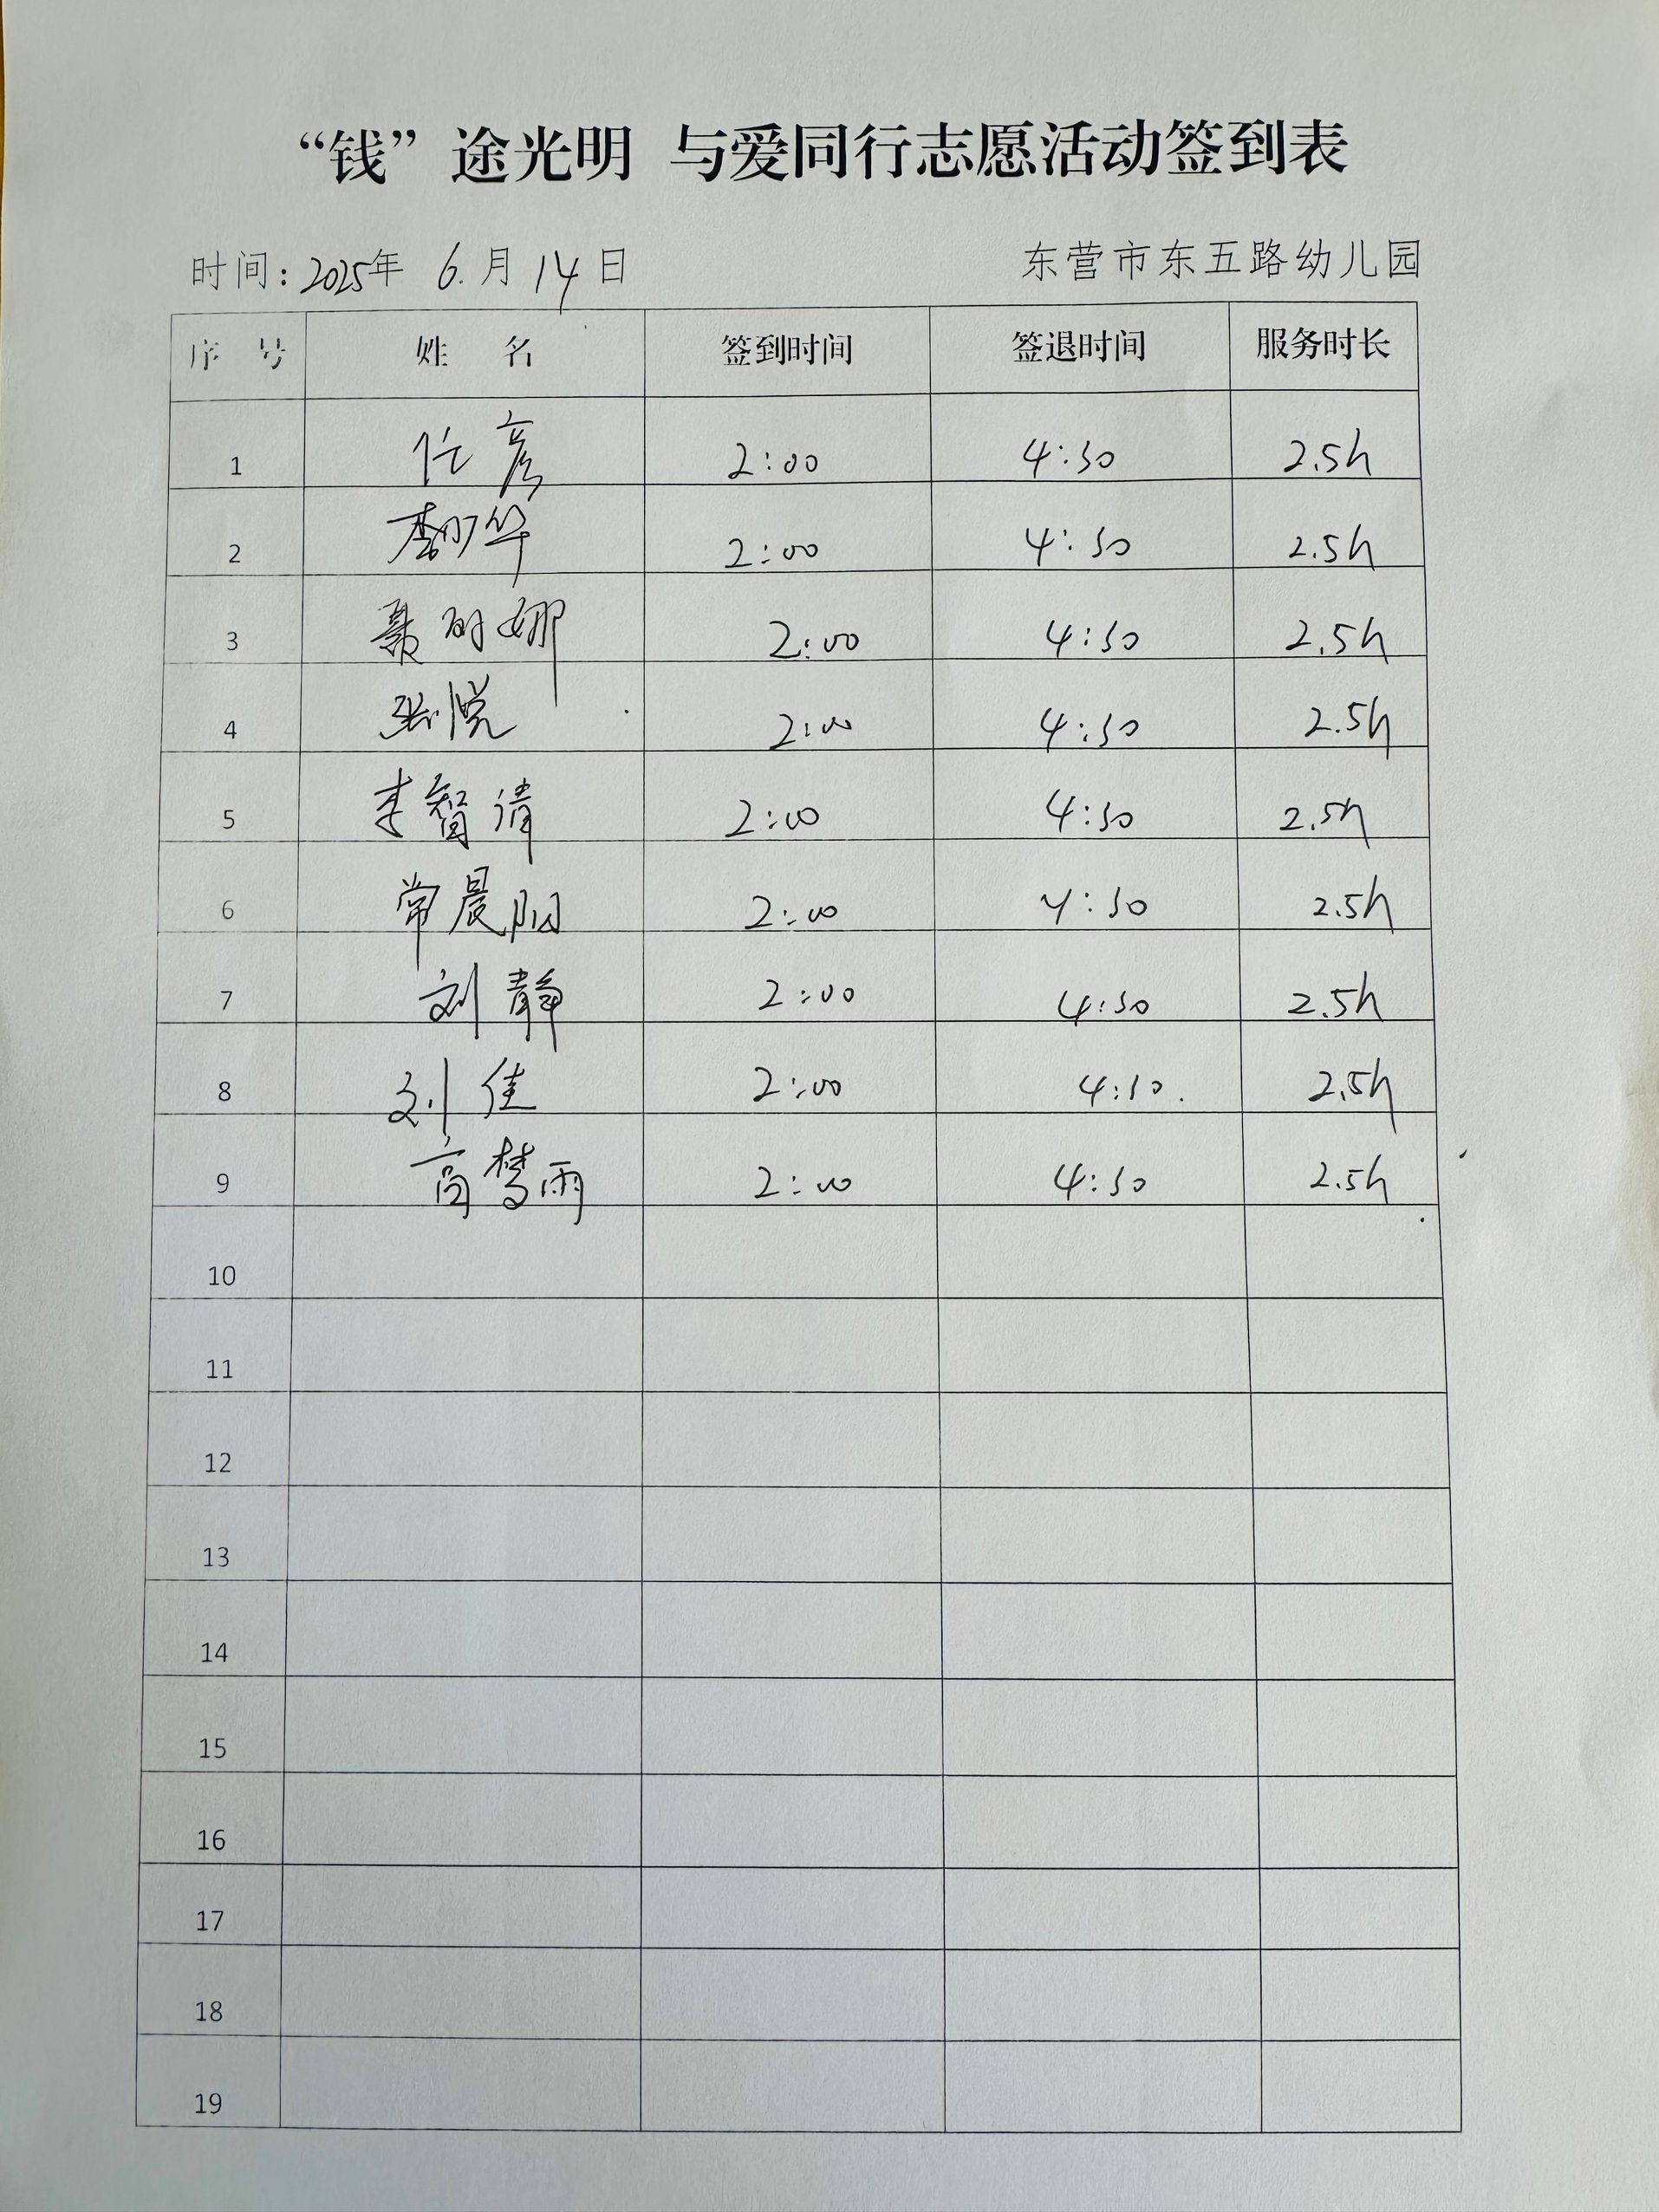 “钱”途光明 与爱同行志愿活动签到表
时间：2025年 6.月 14日 东营市东五路幼儿园
序 号 姓 名 签到时间 签退时间 服务时长
1 任彦 2:00 4:30 2.5h
2 2:00 4:30 2.5h
3 聂 娜 2:00 4:30 2.5h
4 张悦 2:00 4:30 2.5h
5 李智倩 2:00 4:30 2.5h
6 常晨阳 2:00 4:30 2.5h
7 刘静 2:00 4:30 2.5h
8 刘佳 2:00 4:30. 2.5h
9 高梦雨 2:00 4:30 2.5h
10
11
12
13
14
15
16
17
18
19